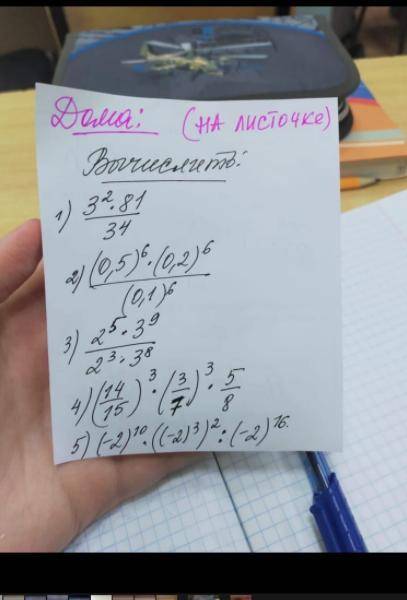 Дома: (на листочке)
Вычислить:
1) 3²·81 / 34
2) (0,5)⁶·(0,2)⁶ / (0,1)⁶
3) 2⁵·3⁹ / 2³·3⁸
4) (14/15)³·(3/7)³·5/8
5) (-2)¹⁰·((-2)³)²:(-2)¹⁶.